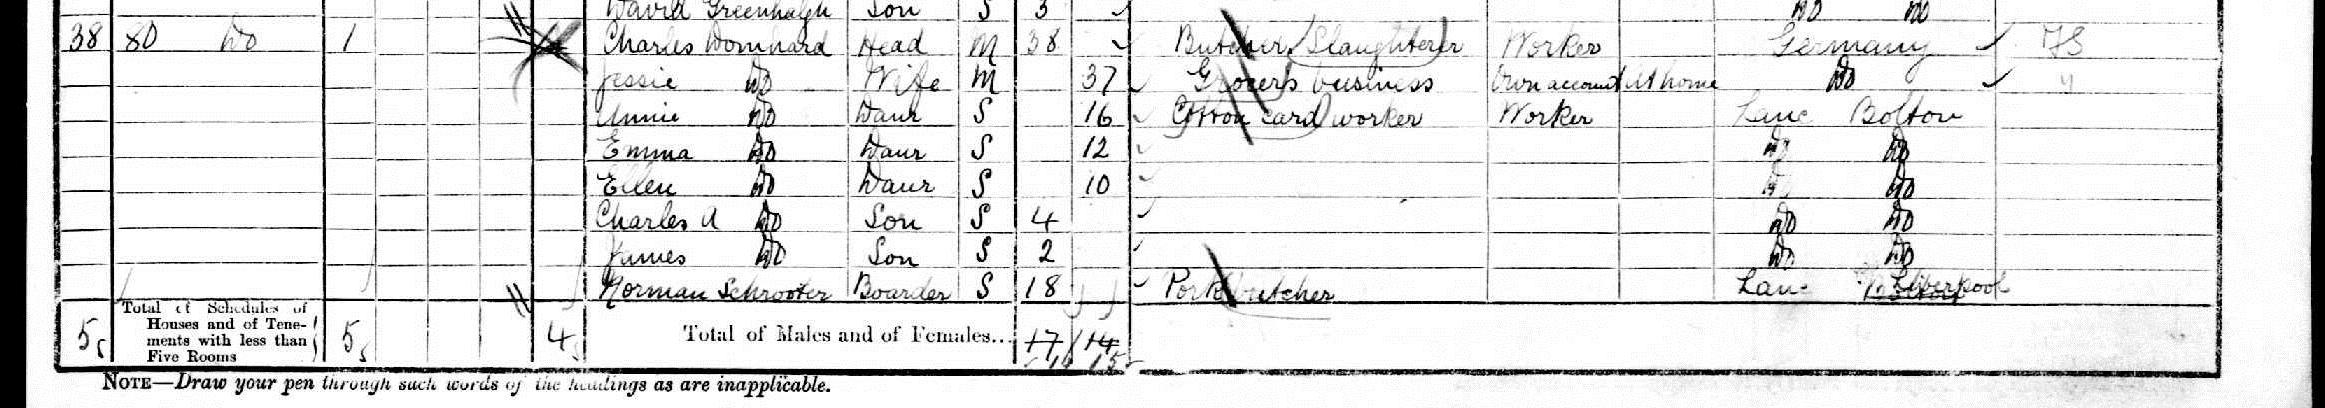 David Greenhalgh Son S 3 Do Do
38 80 Do 1 Charles Domhard Head M 38 Butcher (Slaughterer) Worker Germany FS
Jessie Do Wife M 37 Grocers business Own account At home Do
Annie Do Daur S 16 Cotton card worker Worker Lanc Bolton
Emma Do Daur S 12 Do Do
Ellen Do Daur S 10 Do Do
Charles A Do Son S 4 Do Do
James Do Son S 2 Do Do
Norman Schrooter Boarder S 18 Pork butcher Lanc Liverpool
5 Total of Schedules of Houses and of Tene-
ments with less than Five Rooms 5 4 Total of Males and of Females... 17 14
16 15
NOTE—Draw your pen through such words of the headings as are inapplicable.